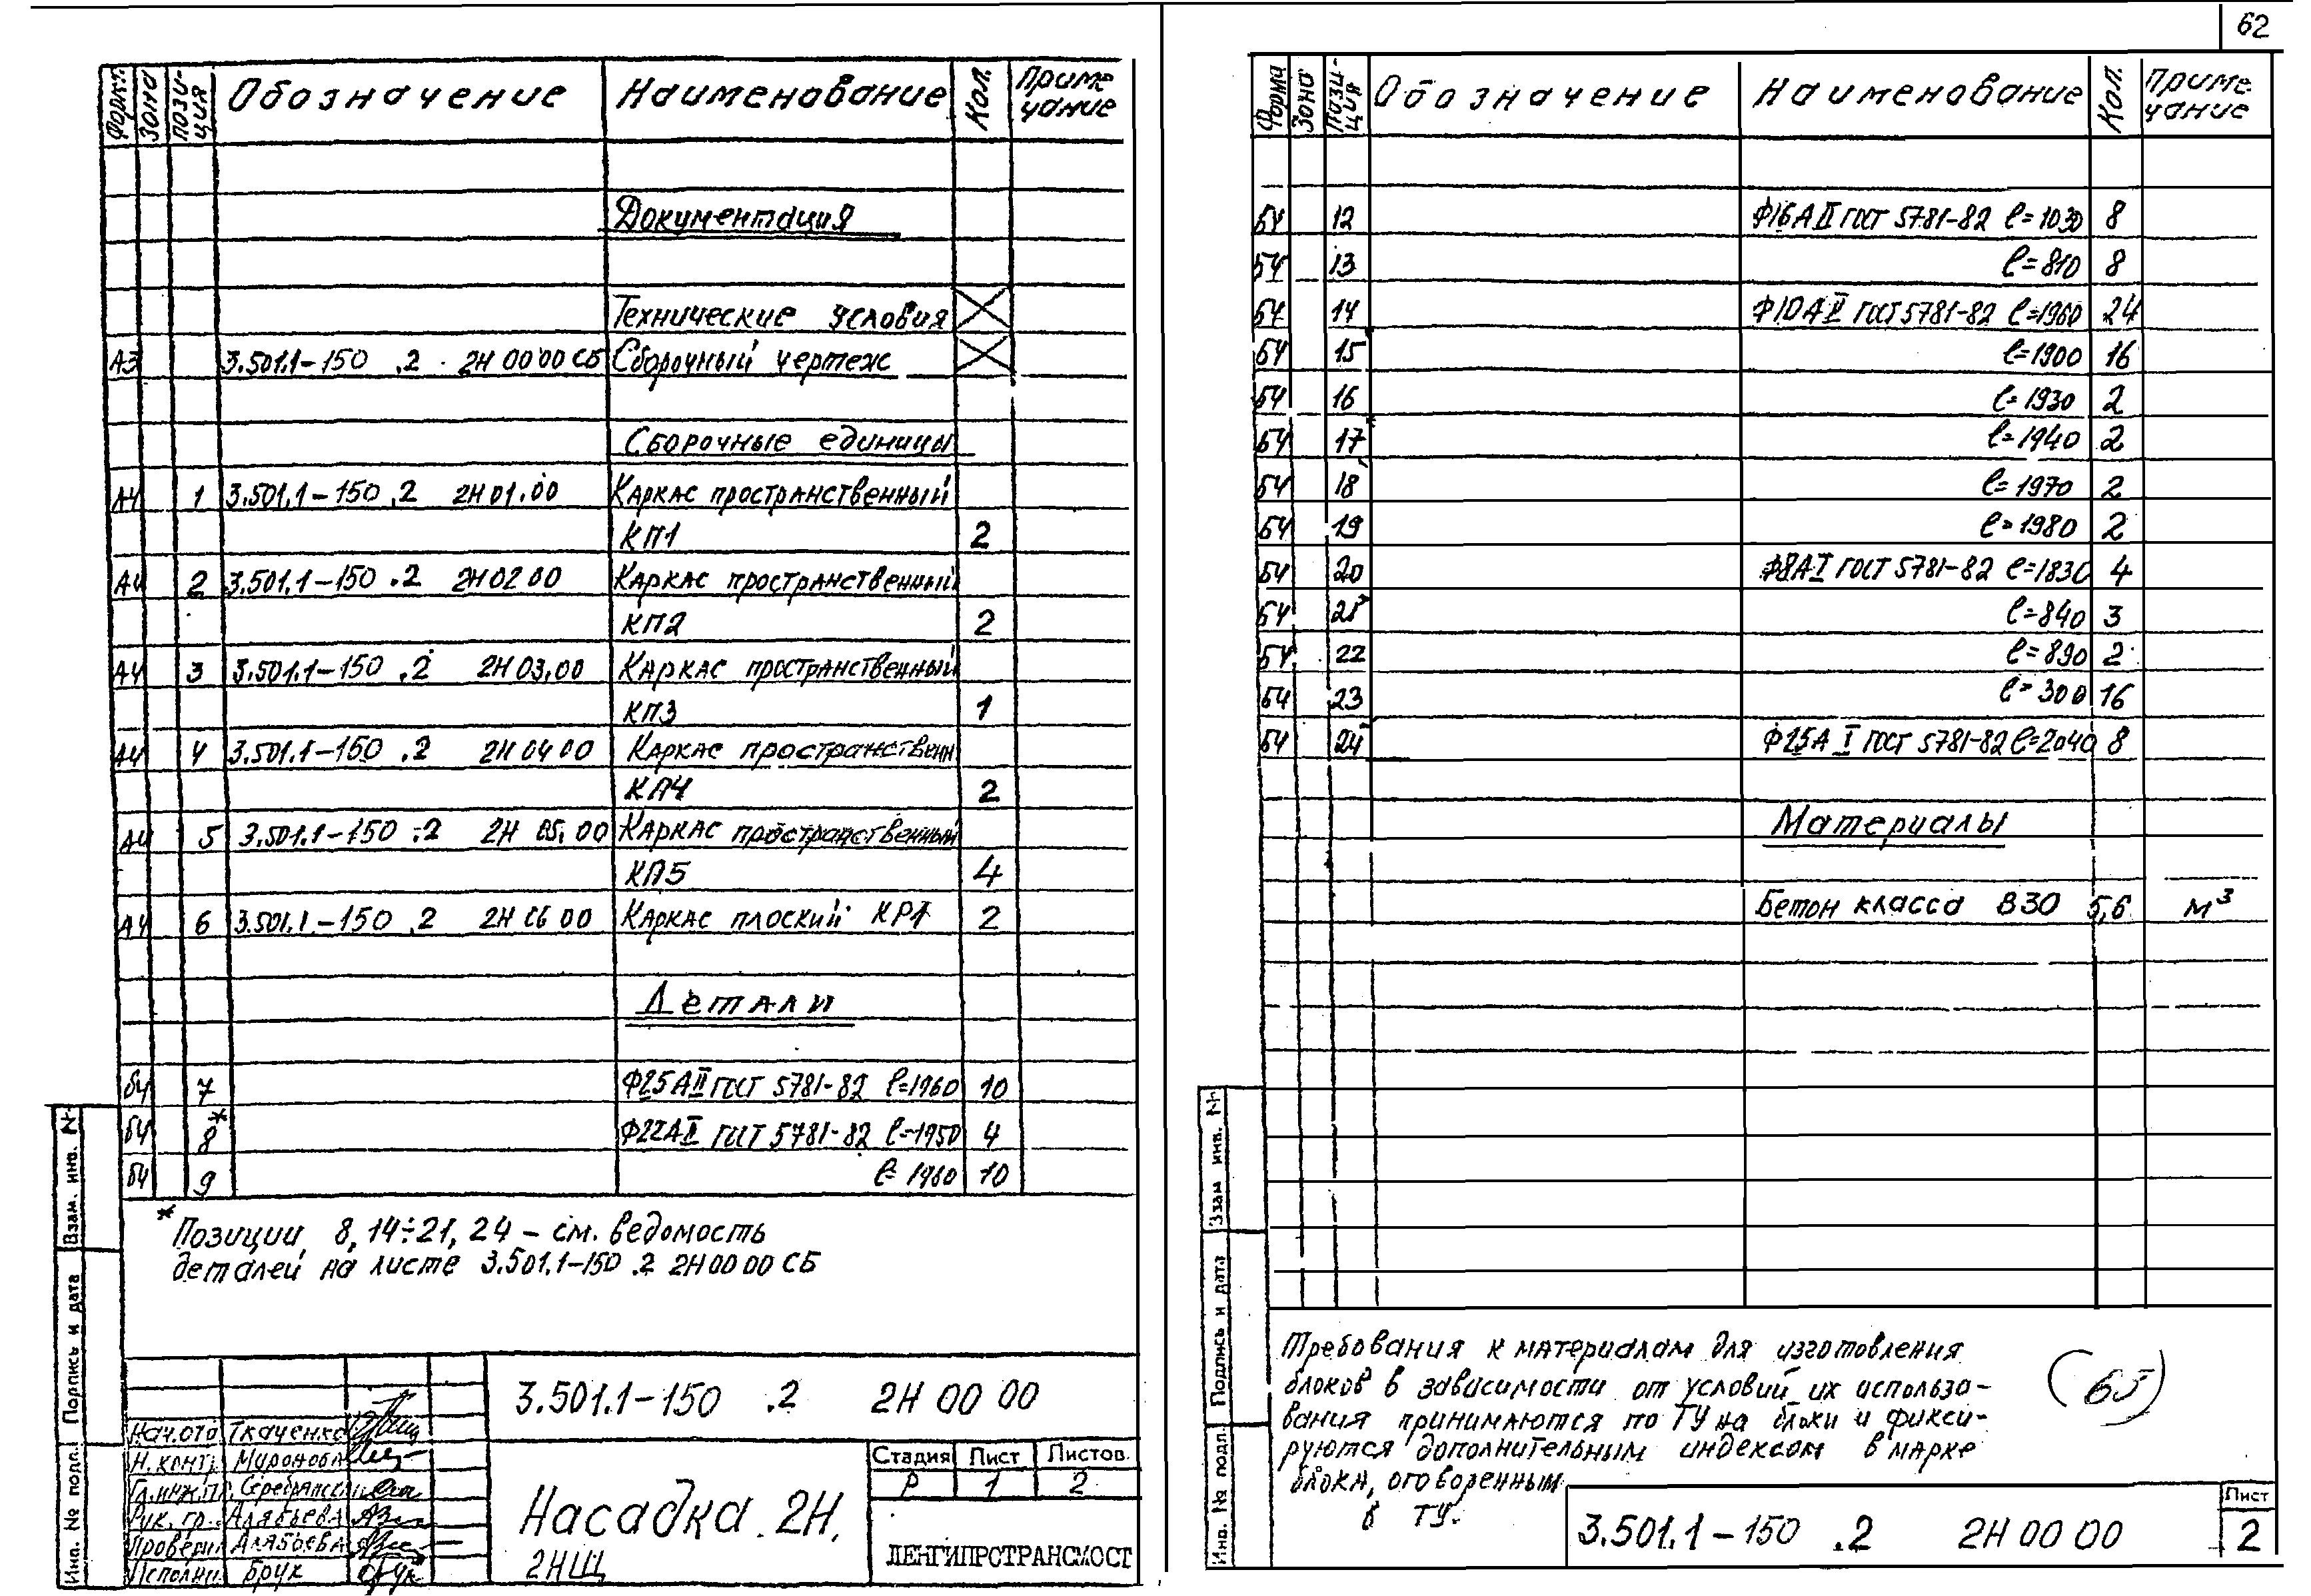 62
Формат Зона Позиция Обозначение Наименование Кол. Примечание
Документация
Технические условия
А3 3.501.1-150 .2 2Н 00 00 СБ Сборочный чертеж
Сборочные единицы
А4 1 3.501.1-150 .2 2Н 01.00 Каркас пространственный
КП1 2
А4 2 3.501.1-150 .2 2Н 02 00 Каркас пространственный
КП2 2
А4 3 3.501.1-150 .2 2Н 03.00 Каркас пространственный
КП3 1
А4 4 3.501.1-150 .2 2Н 04 00 Каркас пространственн
КП4 2
А4 5 3.501.1-150 .2 2Н 05.00 Каркас пространственный
КП5 4
А4 6 3.501.1-150 .2 2Н 06 00 Каркас плоский КР1 2
Детали
б4 7 Ф25АII ГОСТ 5781-82 ℓ=1960 10
б4 8* Ф22АII ГОСТ 5781-82 ℓ=1950 4
б4 9 ℓ=1960 10
* Позиции 8, 14÷21, 24 - см. ведомость
деталей на листе 3.501.1-150 .2 2Н 00 00 СБ
3.501.1-150 .2 2Н 00 00
Нач.отд Ткаченко
Н. контр. Миронова
Гл.инж.п.
Рук. гр. Алябьева
Проверил Алябьева
Исполни. Брук
Насадка 2Н,
2НЩ
Стадия Лист Листов
Р 1 2
ЛЕНГИПРОТРАНСМОСТ
Инв. № подл. Подпись и дата Взам. инв. №
Форма Зона Позиция Обозначение Наименование Кол. Примечание
БЧ 12 Ф16АII ГОСТ 5781-82 ℓ=1030 8
БЧ 13 ℓ=810 8
БЧ 14 Ф10АII ГОСТ 5781-82 ℓ=1960 24
БЧ 15 ℓ=1900 16
БЧ 16 ℓ=1930 2
БЧ 17 ℓ=1940 2
БЧ 18 ℓ=1970 2
БЧ 19 ℓ=1980 2
БЧ 20 Ф8АI ГОСТ 5781-82 ℓ=1830 4
БЧ 21 ℓ=840 3
БЧ 22 ℓ=890 2
БЧ 23 ℓ=300 16
БЧ 24 Ф25А I ГОСТ 5781-82 ℓ=2040 8
Материалы
Бетон класса В30 5,6 м³
Требования к материалам для изготовления
блоков в зависимости от условий их использа-
вания принимаются по ТУ на блоки и фикси-
руются дополнительным индексом в марке
блока, оговоренным
в ТУ.
(65)
3.501.1-150 .2 2Н 00 00
Лист
2
Инв. № подл. Подпись и дата Взам инв. №